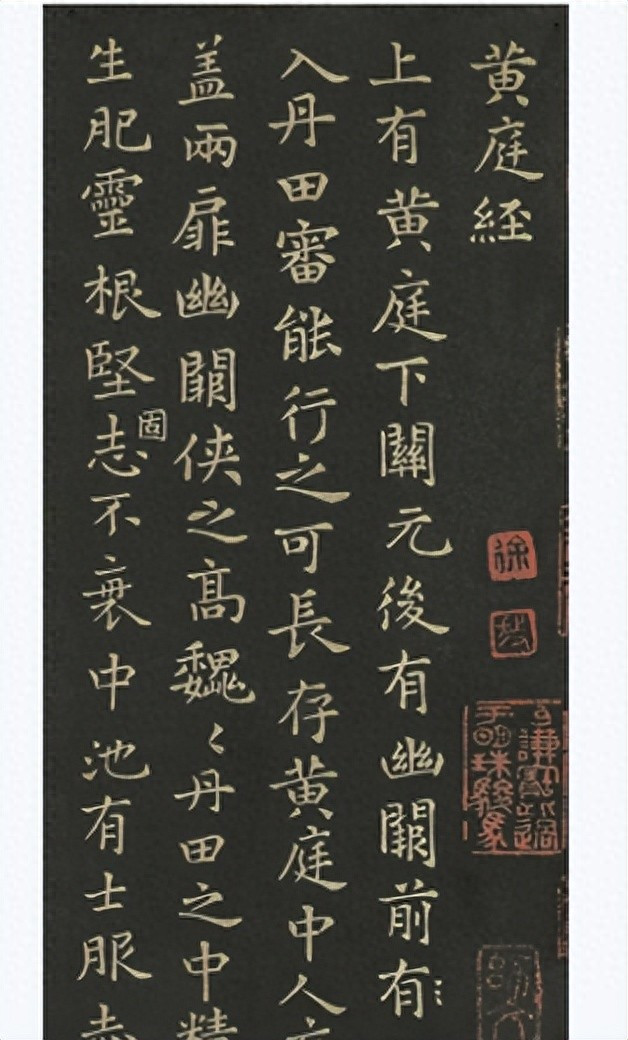 黄庭経
上有黄庭下關元後有幽闕前有
入丹田審能行之可長存黄庭中人
盖兩扉幽闕侠之高魏〻丹田之中精
生肥靈根堅志不衰中池有士服
固
徐